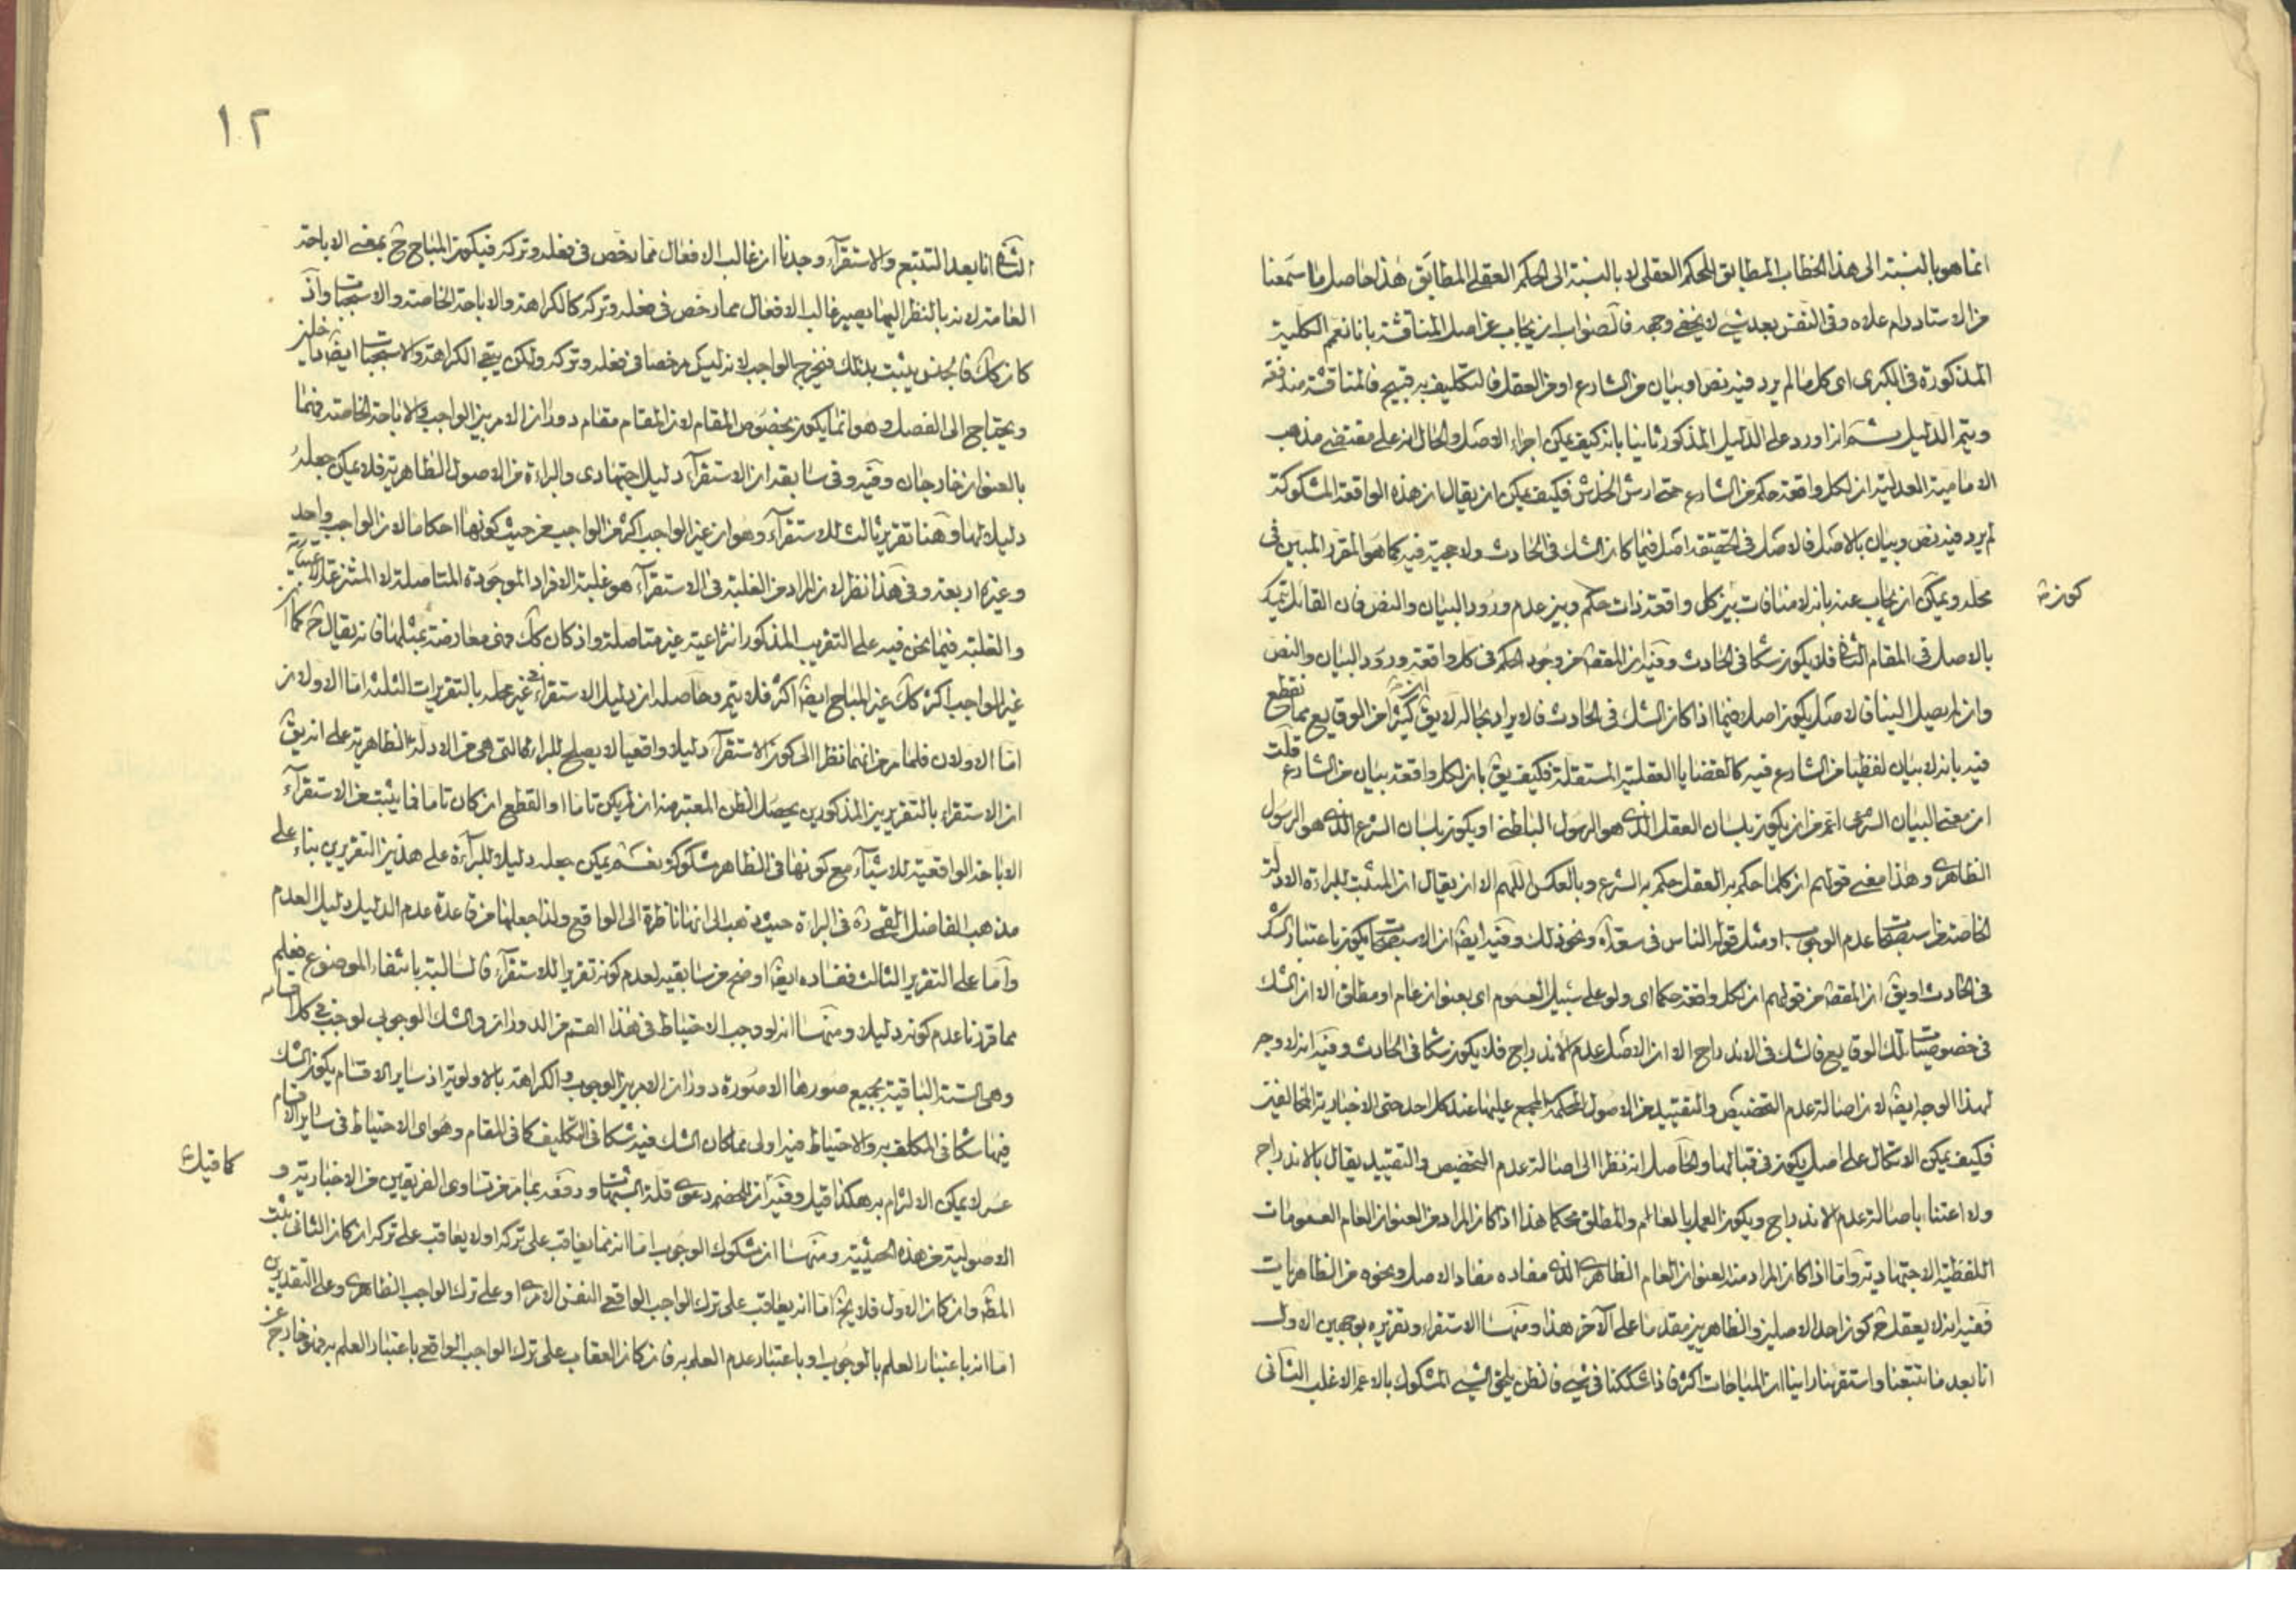 انما هو بالنسبة الى هذا الخطاب المطابق للحكم العقلى لا بالنسبة الى الحكم العقلى المطابق هذا حاصل ما سمعنا
من الاستاد دام علاه وفى النفس بعد شئ لا يخفى وجهه فالصواب ان يجاب عن اصل المناقشة بانا نعمم الكلية
المذكورة فى الكبرى اى كل ما لم يرد فيه نص او بيان من الشارع او من العقل فالتكليف به قبيح فالمناقشة مندفعة
ويتم الدليل ثم ان اورد على الدليل المذكور ثانيا بانه كيف يمكن اجراء الاصل والحال انه على مقتضى مذهب
الامامية العدلية ان لكل واقعة حكم من الشارع حتى ارش الخدش فكيف يمكن ان يقال ان هذه الواقعة المشكوكة
لم يرد فيه نص وبيان بالاصل فالاصل فى الحقيقة اصل فيما كان الشك فى الحادث ولا حجية فيه كما هو المقرر المبين فى
محله ويمكن ان يجاب عنه بانه لا منافات بين كل واقعة ذات حكم وبين عدم ورود البيان والنص فان القائل يتمسك
كونه
بالاصل فى المقام الثانى فلا يكون شكا فى الحادث وفيه ان المقصد من وجود الحكم فى كل واقعة ورود البيان والنص
وان لم يصل الينا فالاصل يكون اصلا فيما اذا كان الشك فى الحادث فالايراد بحاله لا يق ان كثيرا من الوقايع مما نقطع
فيه بانه لا بيان لفظيا من الشارع فيه كالقضايا العقلية المستقلة فكيف يق بان لكل واقعة بيان من الشارع قلت
ان معنى البيان الشرعى اعم من ان يكون بلسان العقل الذى هو الرسول الباطنى او يكون بلسان الشرع الذى هو الرسول
الظاهرى وهذا معنى قولهم ان كلما حكم به العقل حكم به الشرع وبالعكس اللهم الا ان يقال ان المثبت للبراءة الادلة
الخاصة من استصحاب عدم الوجوب او مثل قوله الناس فى سعة اه ونحو ذلك وفيه ايضا ان الاستصحاب يكون باعتبار الشك
فى الحادث او يق ان المقصد من قولهم ان لكل واقعة حكما اى ولو على سبيل العموم اى بعنوان عام او مطلق الا ان الشك
فى خصوصيات تلك الوقايع فالشك فى الاندراج الا ان الاصل عدم الاندراج فلا يكون شكا فى الحادث وفيه انه لا وجه
لهذا الوجه ايضا لان اصالة عدم التخصيص والتقييد من الاصول المحكمة المجمع عليها عند كل احد حتى الاخبارية المخالفين
فكيف يمكن الاتكال على اصل يكون فى قبالها والحاصل انه نظرا الى اصالة عدم التخصيص والتقييد يقال بالاندراج
ولا اعتناء باصالة عدم الاندراج ويكون العمل بالعام والمطلق محكما هذا اذا كان المراد من العنوان العام العمومات
اللفظية الاجتهادية واما اذا كان المراد منه العنوان العام الظاهرى الذى مفاده مفاد الاصل ونحوه من الظاهريات
ففيه انه لا يعقل ح كون احد الاصلين والظاهريين مقدما على الآخر هذا ومنها الاستقراء وتقريره بوجهين الاول
انا بعد ما تتبعنا واستقرينا راينا ان المباحات اكثر فاذا شككنا فى شئ فالظن يلحق الشئ المشكوك بالاعم الاغلب الثانى
١٢
الثانى انا بعد التتبع والاستقراء وجدنا ان غالب الافعال مما رخص فى فعله وتركه فيكون المباح ح بمعنى الاباحة
العامة لانه بالنظر اليها يصير غالب الافعال مما رخص فى فعله وتركه كالكراهة والاباحة الخاصة والاستحباب واذ
كان كك فالجنس يثبت بذلك فيخرج الواجب لانه ليس مرخصا فى فعله وتركه ولكن يبقى الكراهة والاستحباب ايضا داخلين
ويحتاج الى الفصل وهو انما يكون بخصوص المقام لان المقام مقام دوران الامر بين الواجب والاباحة الخاصة فهما
بالعنوان خارجان وفيه وفى سابقه ان الاستقراء دليل اجتهادى والبراءة من الاصول الظاهرية فلا يمكن جعله
دليلا لها وهنا تقرير ثالث للاستقراء وهو ان غير الواجب اكثر من الواجب من حيث كونها احكاما لان الواجب واحد
وغيره اربعة وفى هذا نظر لان المراد من الغلبة فى الاستقراء هو غلبة الافراد الموجودة المتاصلة لا المنتزعة الاعتبارية
والغلبة فيما نحن فيه على التقريب المذكور انتزاعية غير متاصلة واذ كان كك فهى معارضة بمثلها فانه يقال ح كما ان
غير الواجب اكثر كك غير المباح ايضا اكثر فلا يتم وحاصله ان دليل الاستقراء فى غير محله بالتقريرات الثلثة اما الاولان
اما الاولان فلما مر من انهما نظرا الى كون الاستقراء دليلا واقعيا لا يصلح للبراءة التى هى من الادلة الظاهرية على انه يق
ان الاستقراء بالتقريرين المذكورين يحصل الظن المعتبر منه ان لم يكن تاما او القطع ان كان تاما فما يثبت من الاستقراء
الاباحة الواقعية للاشياء مع كونها فى الظاهر مشكوكة نعم يمكن جعله دليلا للبراءة على هذين التقريرين بناء على
مذهب الفاضل القمى ره فى البراءة حيث ذهب الى انها ناظرة الى الواقع ولذا جعلها من قاعدة عدم الدليل دليل العدم
واما على التقرير الثالث ففساده ايضا اوضح من سابقيه لعدم كونه تقريرا للاستقراء فالسالبة بانتفاء الموضوع فعلم
مما قررنا عدم كونه دليلا ومنها انه لو وجب الاحتياط فى هذا القسم من الدوران والشك الوجوبى لوجب فى كل اقسامه
وهى الستة الباقية بجميع صورها الا صورة دوران الامر بين الوجوب والكراهة بالاولوية اذ ساير الاقسام يكون الشك
فيها شكا فى المكلف به والاحتياط فيه اولى مما كان الشك فيه شكا فى التكليف كما فى المقام وهو اى الاحتياط فى ساير الاقسام
عسر لا يمكن الالتزام به هكذا قيل وفيه ان للخصم دعوى قلة الشبهات ودفعه بما مر من تساوى الفريقين من الاخبارية و
كما قيل
الاصولية من هذه الحيثية ومنها ان مشكوك الوجوب اما انه مما يعاقب على تركه او لا يعاقب على تركه ان كان الثانى يثبت
المطه وان كان الاول فلا يخ اما انه يعاقب على ترك الواجب الواقعى النفس الامرى او على ترك الواجب الظاهرى وعلى التقديرين
اما انه باعتبار العلم بالوجوب او باعتبار عدم العلم به فان كان العقاب على ترك الواجب الواقعى باعتبار العلم به فهو خارج عن